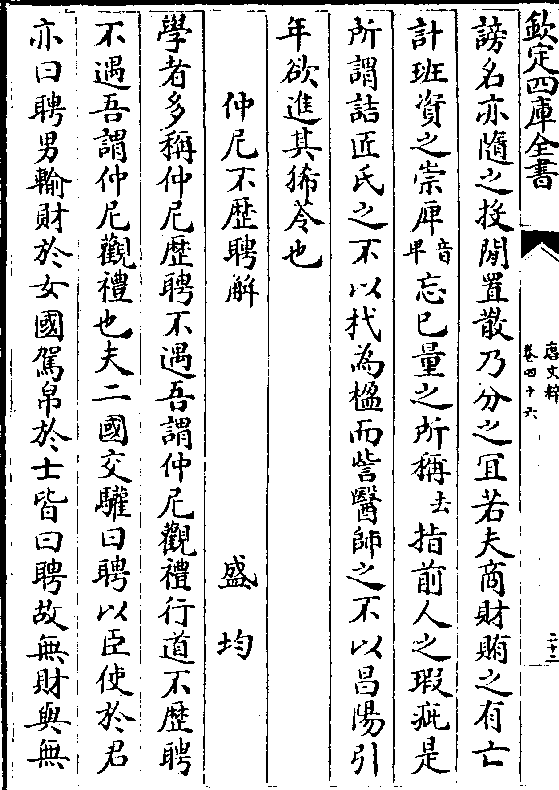 欽定四庫全書
唐文粹
卷四十六
二十二
謗名亦隨之投閒置散乃分之宜若夫商財賄之有亡
計班資之崇庳音早忘已量之所稱去指前人之瑕疵是
所謂詰匠氏之不以杙為楹而訾醫師之不以昌陽引
年欲進其狶苓也
仲尼不歷聘解
盛均
學者多稱仲尼歷聘不遇吾謂仲尼觀禮行道不歷聘
不遇吾謂仲尼觀禮也夫二國交驩曰聘以臣使於君
亦曰聘男輸財於女國駕帛於士皆曰聘故無財與無